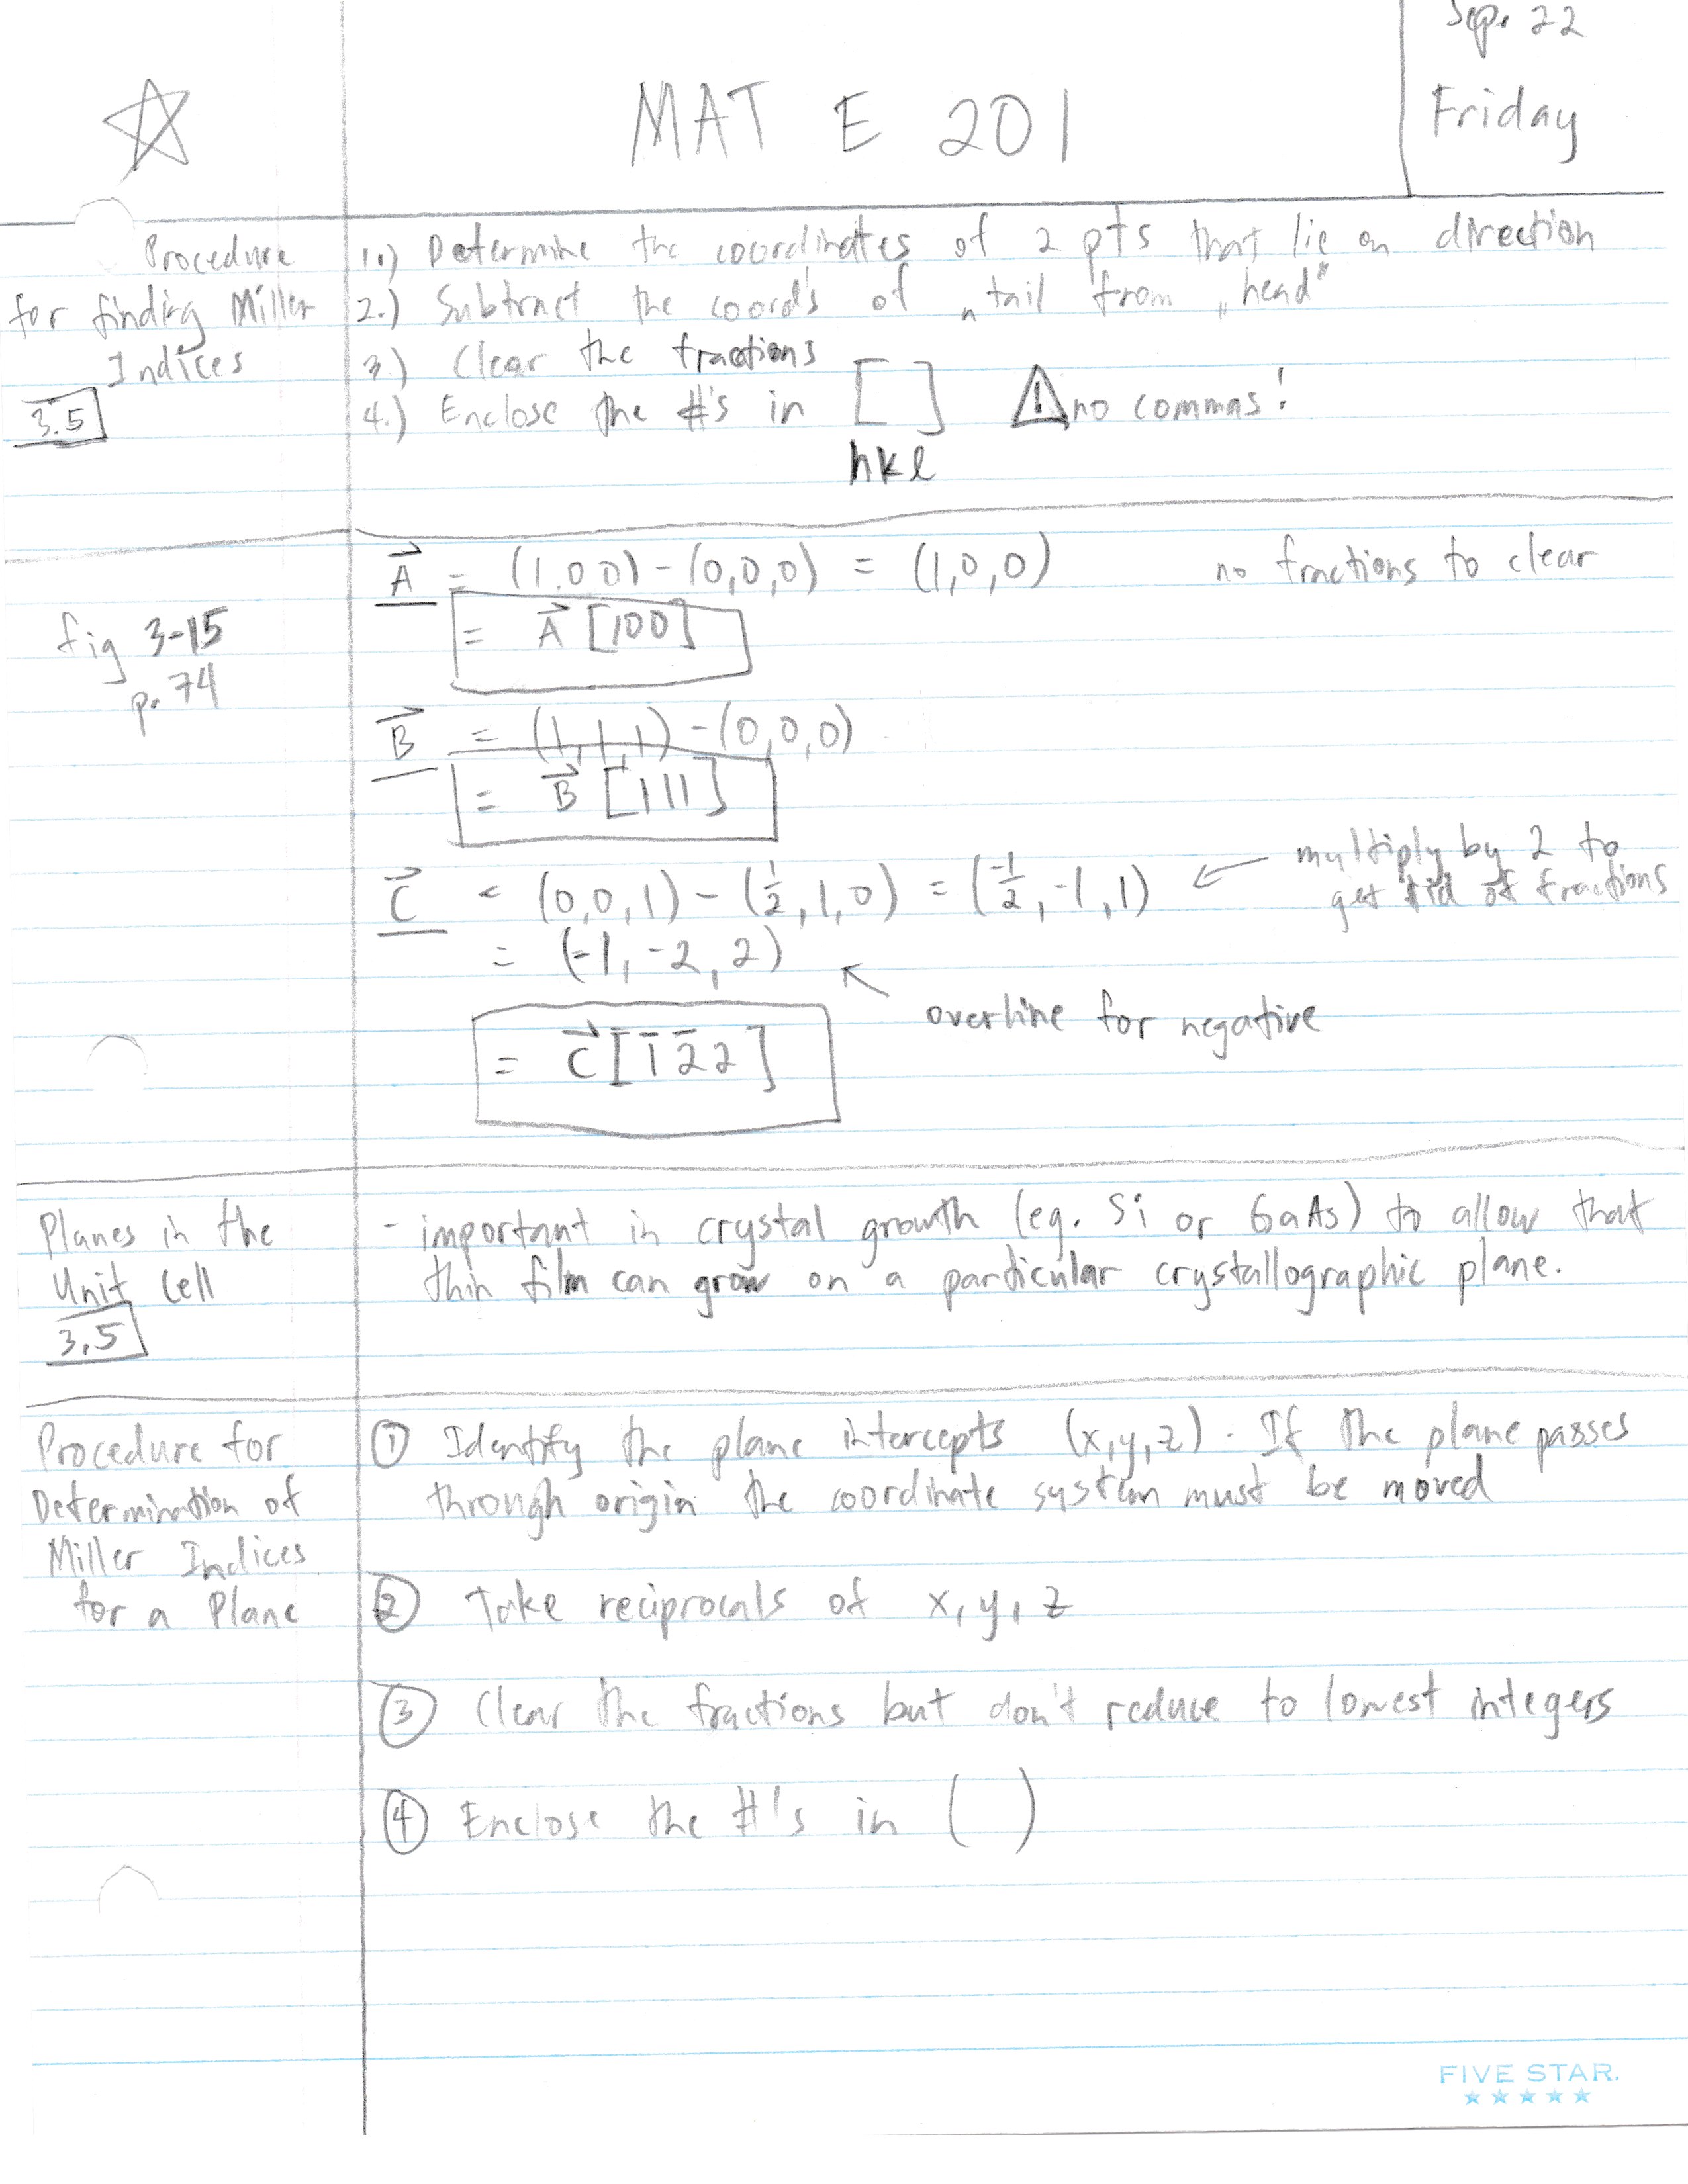 Sep. 22
MAT E 201
Friday
Procedure
for finding Miller
Indices
3.5
1.) Determine the coordinates of 2 pts that lie on direction
2.) Subtract the coords of "tail from "head"
3.) Clear the fractions
4.) Enclose the #'s in [ ] ! no commas!
hkl
A = (1,0 0) - (0,0,0) = (1,0,0) no fractions to clear
= A [100]
fig 3-15
p. 74
B = (1,1,1) - (0,0,0)
= B [111]
C = (0,0,1) - (1/2,1,0) = (-1/2,-1,1) ← multiply by 2 to
get rid of fractions
= (-1,-2,2)
overline for negative
= C [1̅ 2̅ 2]
Planes in the
Unit Cell
3.5
- important in crystal growth (eg. Si or GaAs) to allow that
thin film can grow on a particular crystallographic plane.
Procedure for
Determination of
Miller Indices
for a Plane
① Identify the plane intercepts (x,y,z). If the plane passes
through origin the coordinate system must be moved
② Take reciprocals of x, y, z
③ Clear the fractions but don't reduce to lowest integers
④ Enclose the #'s in ( )
FIVE STAR.
★★★★★